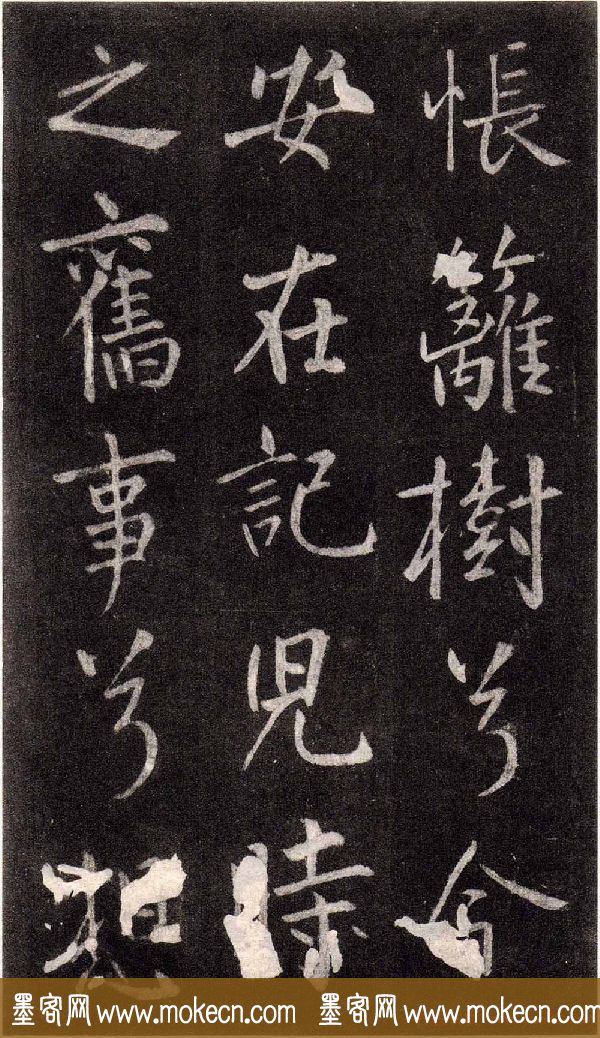 悵籬樹兮今
安在記兒時
之舊事兮
墨客网 www.mokecn.com 墨客网 www.mokecn.com